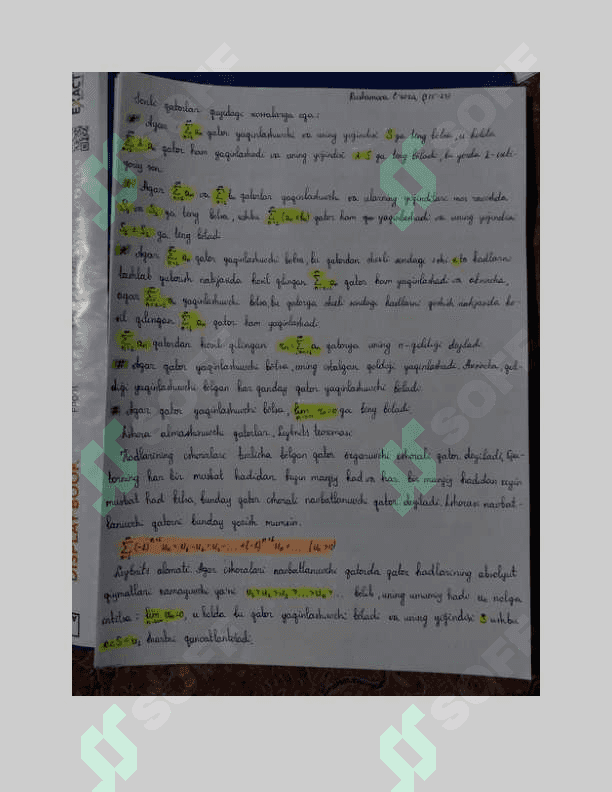 Rustamova
Sonli qatorlar quyidagi xossalarga ega:
* Agar ∑ aₙ qator yaqinlashuvchi va uning yig'indisi S ga teng bo'lsa, u holda
∑ λ aₙ qator ham yaqinlashadi va uning yig'indisi λ S ga teng bo'ladi, bu yerda λ - ixti-
yoriy son.
* Agar ∑ aₙ va ∑ bₙ qatorlar yaqinlashuvchi va ularning yig'indilari mos ravishda
S₁ va S₂ ga teng bo'lsa, ushbu ∑ (aₙ ± bₙ) qator ham yaqinlashadi va uning yig'indisi
S₁ ± S₂ ga teng bo'ladi
* Agar ∑ aₙ qator yaqinlashuvchi bo'lsa, bu qatordan chekli sondagi hadlarni
tashlab yuborish natijasida hosil qilingan ∑ aₙ qator ham yaqinlashadi va aksincha,
agar ∑ aₙ yaqinlashuvchi bo'lsa, bu qatorga chekli sondagi hadlarni qo'shish natijasida ho-
sil qilingan ∑ aₙ qator ham yaqinlashadi.
∑ aₙ qatordan hosil qilingan rₙ = ∑ aₙ qatorga uning n-qoldig'i deyiladi.
# Agar qator yaqinlashuvchi bo'lsa, uning istalgan qoldig'i yaqinlashadi. Aksincha, qol-
dig'i yaqinlashuvchi bo'lgan har qanday qator yaqinlashuvchi bo'ladi.
# Agar qator yaqinlashuvchi bo'lsa, lim rₙ = 0 ga teng bo'ladi.
Ishora almashinuvchi qatorlar. Leybnits teoremasi
Hadlarining ishoralari turlicha bo'lgan qator o'zgaruvchi ishorali qator deyiladi. Qa-
torning har bir musbat hadidan keyin manfiy had va har bir manfiy hadidan keyin
musbat had kelsa, bunday qator ishorali navbatlanuvchi qator deyiladi. Ishorasi navbat-
lanuvchi qatorni bunday yozish mumkin.
∑ (-1)ⁿ⁺¹ uₙ = u₁ - u₂ + u₃ - ... + (-1)ⁿ⁺¹ uₙ + ... (uₙ > 0)
Leybnits alomati. Agar ishoralari navbatlanuvchi qatorda qator hadlarining absolyut
qiymatlari kamayuvchi ya'ni u₁ > u₂ > u₃ > ... > uₙ > ... bo'lib, uning umumiy hadi uₙ nolga
intilsa: lim uₙ = 0, u holda bu qator yaqinlashuvchi bo'ladi va uning yig'indisi S ushbu
0 ≤ S ≤ u₁ shartni qanoatlantiradi.
DISPLAY BOOK
EXACT
SOFF